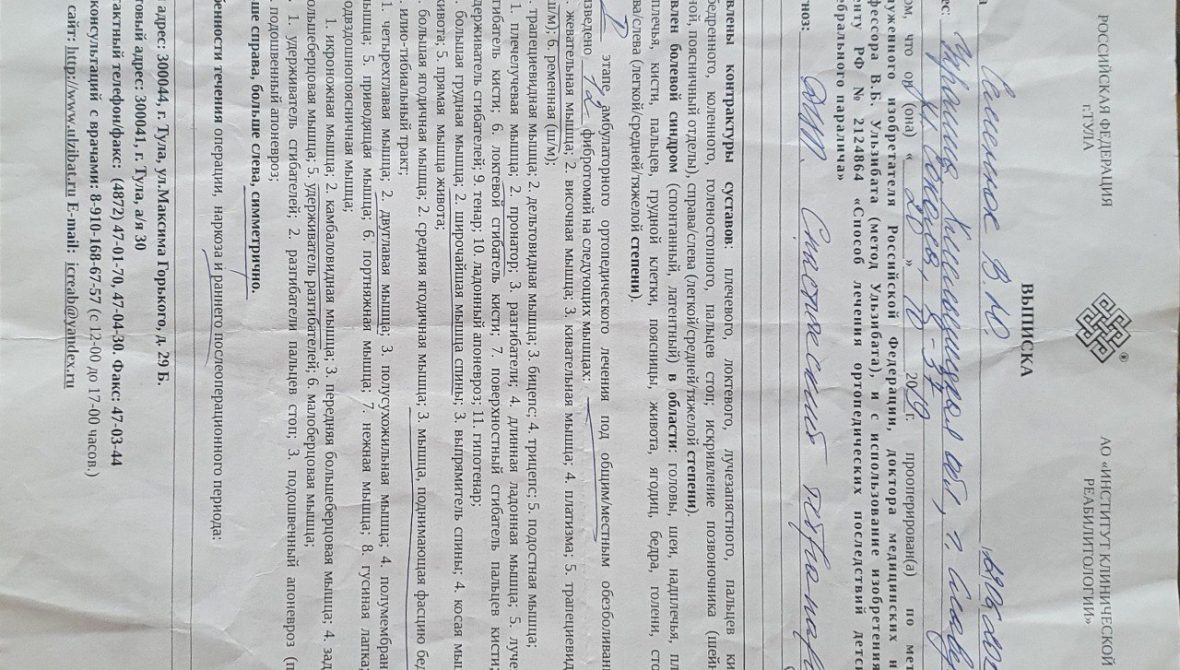 РОССИЙСКАЯ ФЕДЕРАЦИЯ
г.ТУЛА
АО «ИНСТИТУТ КЛИНИЧЕСКОЙ
РЕАБИЛИТОЛОГИИ»
®
ВЫПИСКА
В.Ю.
ес: обл, г.
8-37
ом, что он (она) « 26 » 10 2019 г. прооперирован(а) по мет
уженного изобретателя Российской Федерации, доктора медицинских н
фессора В.Б. Ульзибата (метод Ульзибата), и с использование изобретения
енту РФ № 2124864 «Способ лечения ортопедических последствий детс
ебрального паралича»
ноз: ДЦП. Спастический тетрапар
влены контрактуры суставов: плечевого, локтевого, лучезапястного, пальцев ки
бедренного, коленного, голеностопного, пальцев стоп; искривление позвоночника (шейн
ной, поясничный отделы), справа/слева (легкой/средней/тяжелой степени).
влен болевой синдром (спонтанный, латентный) в области: головы, шеи, надплечья, пл
плечья, кисти, пальцев, грудной клетки, поясницы, живота, ягодиц, бедра, голени, сто
ва/слева (легкой/средней/тяжелой степени).
этапе амбулаторного ортопедического лечения под общим/местным обезболиван
изведено 12 фибротомий на следующих мышцах:
. жевательная мышца; 2. височная мышца; 3. кивательная мышца; 4. платизма; 5. трапециевид
ш/м); 6. ременная (ш/м);
. трапециевидная мышца; 2. дельтовидная мышца; 3. бицепс; 4. трицепс; 5. подостная мышца;
1. плечелучевая мышца; 2. пронатор; 3. разгибатели; 4. длинная ладонная мышца; 5. луче
гибатель кисти; 6. локтевой сгибатель кисти; 7. поверхностный сгибатель пальцев кисти;
держиватель сгибателей; 9. тенар; 10. ладонный апоневроз; 11. гипотенар;
. большая грудная мышца; 2. широчайшая мышца спины; 3. выпрямитель спины; 4. косая мыш
живота; 5. прямая мышца живота;
. большая ягодичная мышца; 2. средняя ягодичная мышца; 3 мышца, поднимающая фасцию бед
. илио-тибиальный тракт;
1. четырехглавая мышца; 2. двуглавая мышца; 3. полусухожильная мышца; 4. полумембран
мышца; 5. приводящая мышца; 6. портняжная мышца; 7. нежная мышца; 8. гусиная лапка;
одвздошнопоясничная мышца;
1. икроножная мышца; 2. камбаловидная мышца; 3. передняя большеберцовая мышца; 4. зад
ольшеберцовая мышца; 5. удерживатель разгибателей; 6. малоберцовая мышца;
1. удерживатель сгибателей; 2. разгибатели пальцев стоп; 3. подошвенный апоневроз (п
. подошвенный апоневроз;
ше справа, больше слева, симметрично.
бенности течения операции, наркоза и раннего послеоперационного периода:
адрес: 300044, г. Тула, ул.Максима Горького, д. 29 Б.
товый адрес: 300041, г. Тула, а/я 30
тактный телефон/факс: (4872) 47-01-70, 47-04-30. Факс: 47-03-44
консультаций с врачами: 8-910-168-67-57 (с 12-00 до 17-00 часов.)
сайт: http://www.ulzibat.ru E-mail: icreab@yandex.ru